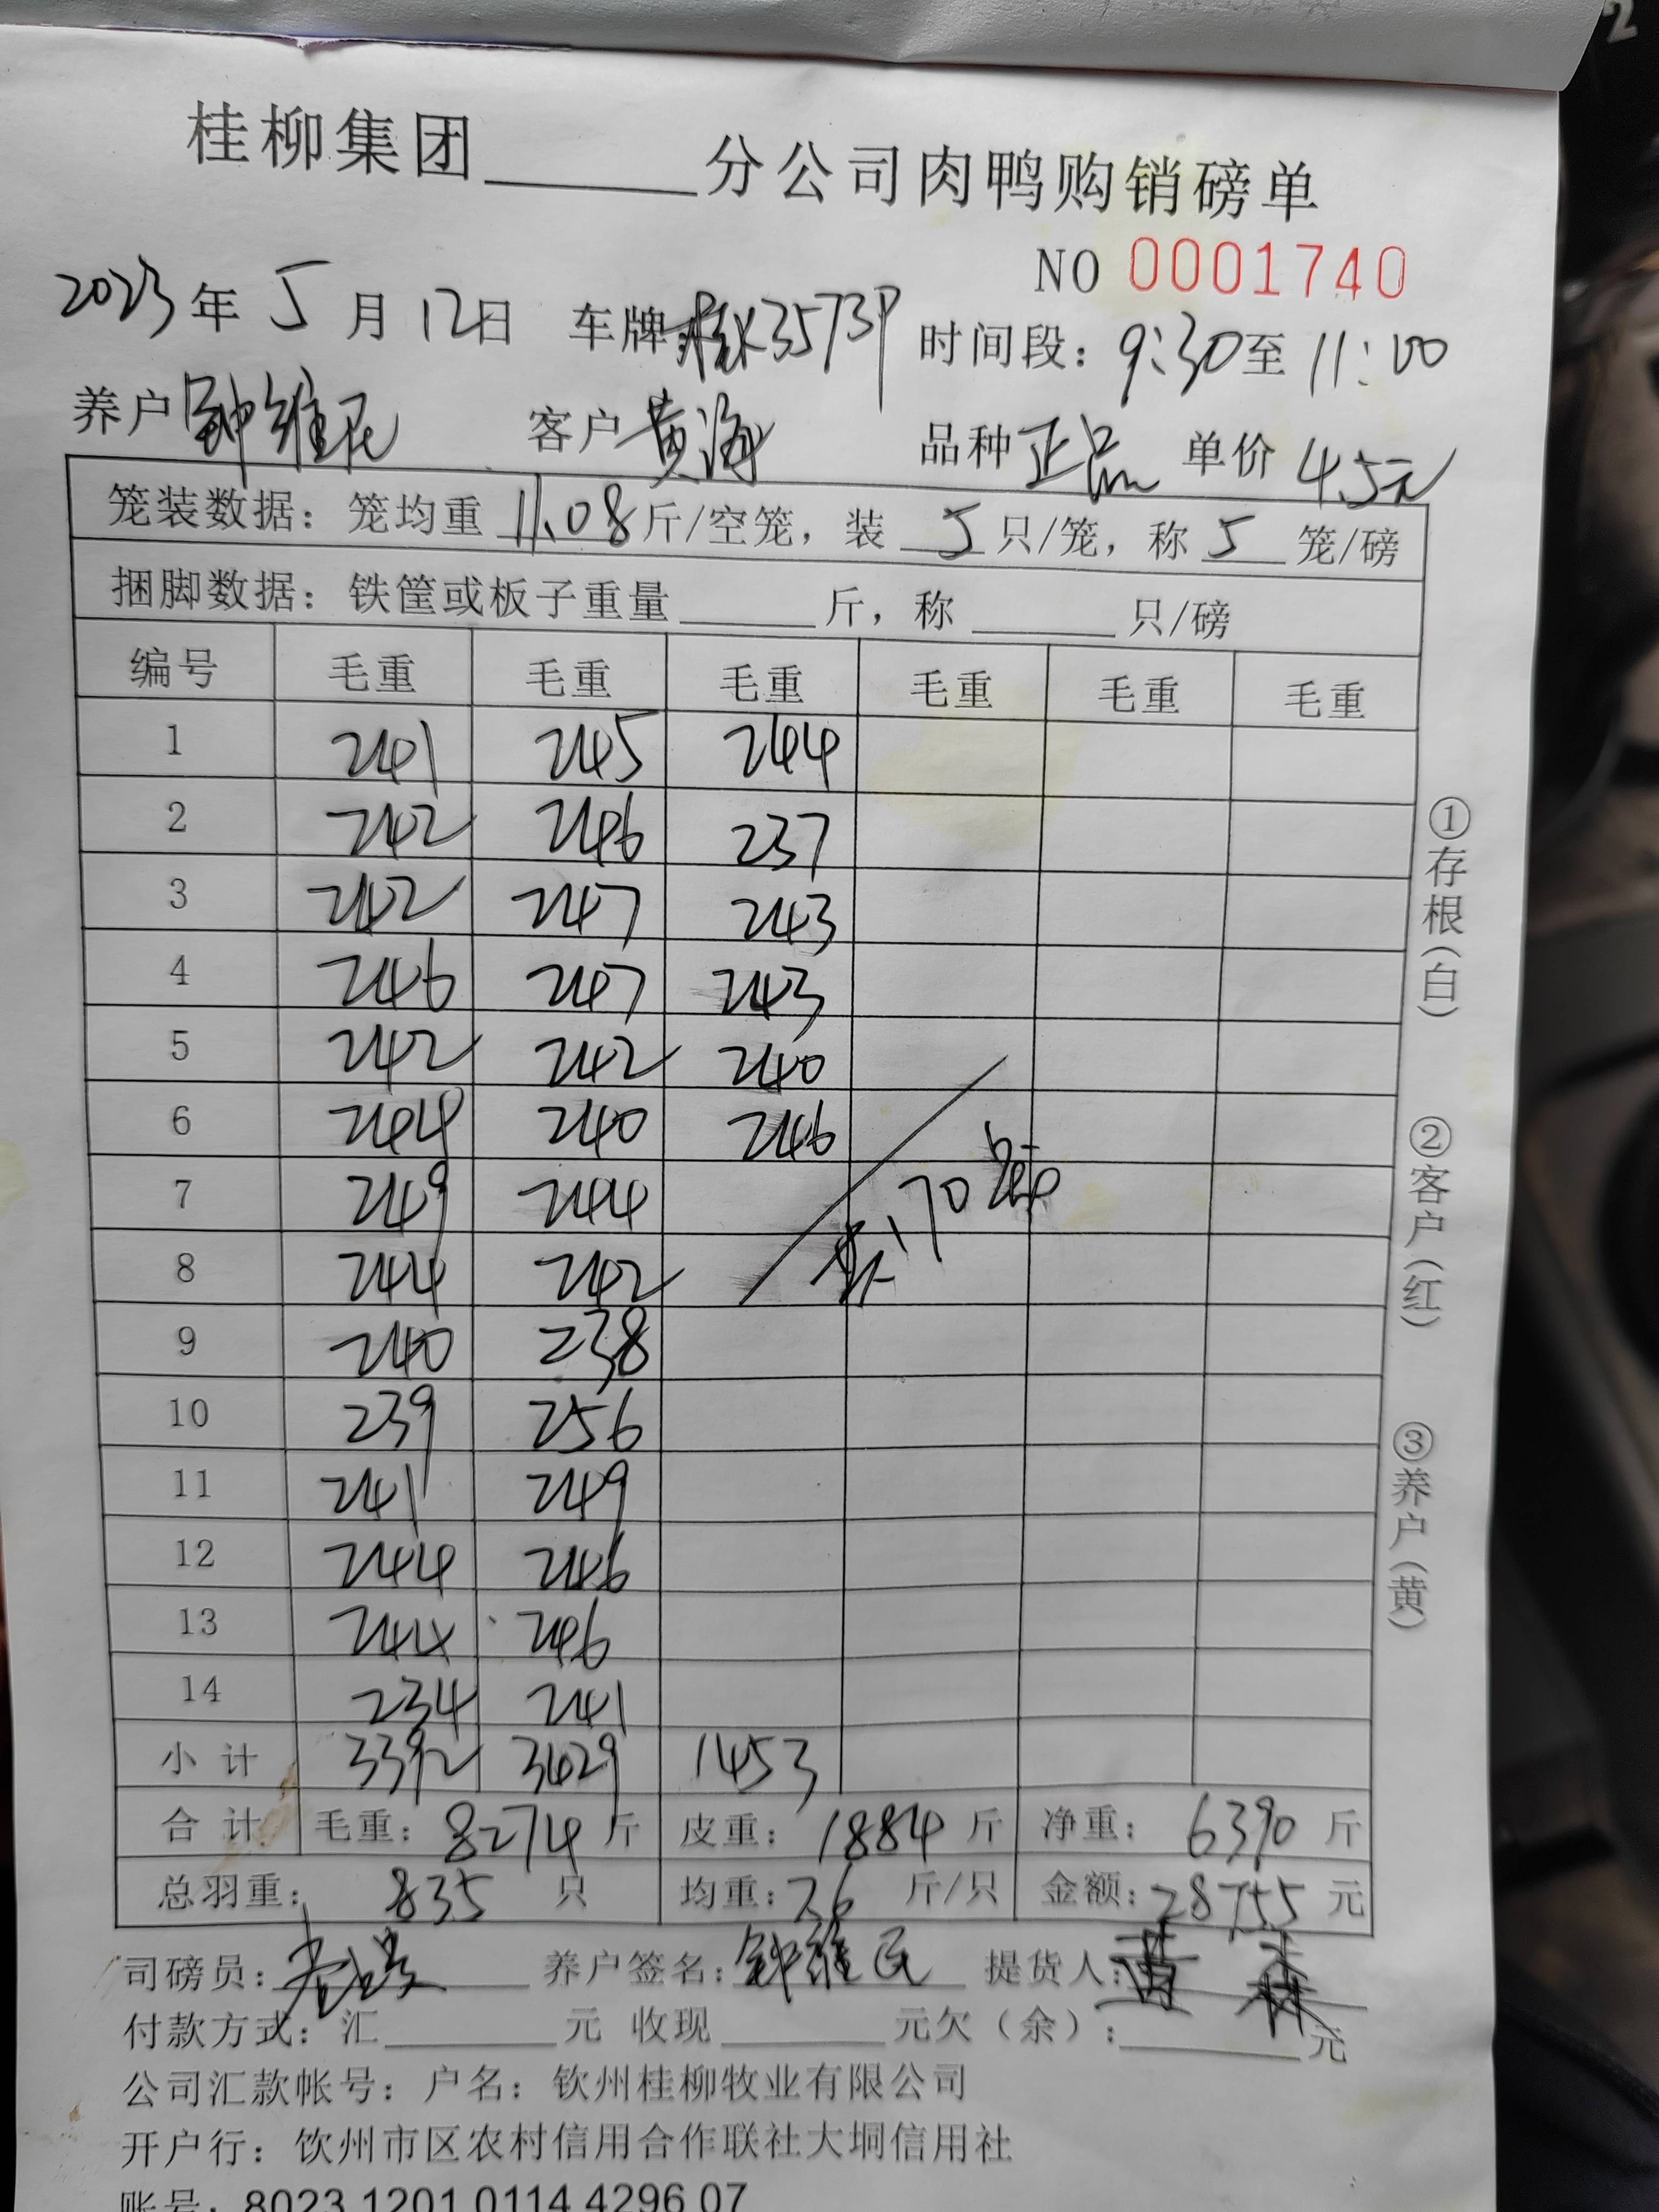 桂柳集团______分公司肉鸭购销磅单
NO 0001740
2023年 5月 12日 车牌:桂K3573P 时间段: 9:30至 11:00
养户 钟维民 客户 黄海 品种 正品 单价 4.5元
笼装数据: 笼均重 11.08斤/空笼, 装 5只/笼, 称 5 笼/磅
捆脚数据: 铁筐或板子重量______斤, 称______只/磅
编号 毛重 毛重 毛重 毛重 毛重 毛重
1 241 245 244
2 242 246 237
3 242 247 243
4 246 247 243
5 242 242 240
6 244 240 246
7 249 244
170
8 244 242
9 240 238
10 239 256
11 241 249
12 244 246
13 244 246
14 234 241
小计 3392 3429 1453
合计 毛重: 8274 斤 皮重: 1884 斤 净重: 6390 斤
总羽重: 835 只 均重: 7.6 斤/只 金额: 28755 元
司磅员: 养户签名: 钟维民 提货人: 黄
付款方式: 汇______元 收现______元欠(余):______元
公司汇款帐号: 户名: 钦州桂柳牧业有限公司
开户行: 饮州市区农村信用合作联社大垌信用社
账号: 8023 1201 0114 4296 07
①存根(白)
②客户(红)
③养户(黄)
2